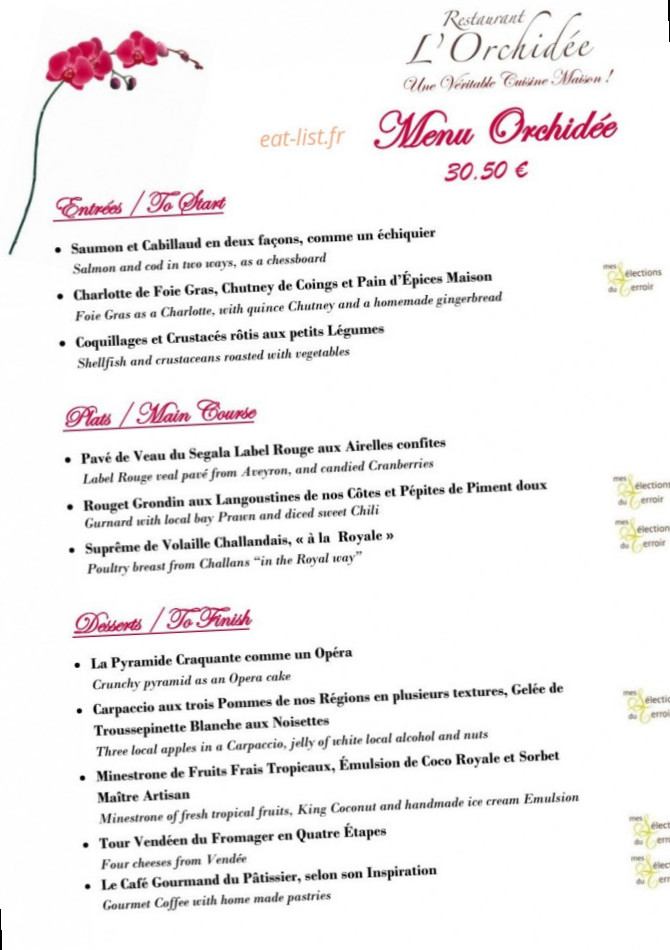 Restaurant
L'Orchidée
Une Véritable Cuisine Maison !
eat-list.fr
Menu Orchidée
30.50 €
Entrées / To Start
• Saumon et Cabillaud en deux façons, comme un échiquier
Salmon and cod in two ways, as a chessboard
• Charlotte de Foie Gras, Chutney de Coings et Pain d'Épices Maison
Foie Gras as a Charlotte, with quince Chutney and a homemade gingerbread
mes Sélections
du Terroir
• Coquillages et Crustacés rôtis aux petits Légumes
Shellfish and crustaceans roasted with vegetables
Plats / Main Course
• Pavé de Veau du Segala Label Rouge aux Airelles confites
Label Rouge veal pavé from Aveyron, and candied Cranberries
• Rouget Grondin aux Langoustines de nos Côtes et Pépites de Piment doux
Gurnard with local bay Prawn and diced sweet Chili
mes Sélections
du Terroir
• Suprême de Volaille Challandais, « à la Royale »
Poultry breast from Challans “in the Royal way”
mes Sélection
du Terroir
Desserts / To Finish
• La Pyramide Craquante comme un Opéra
Crunchy pyramid as an Opera cake
• Carpaccio aux trois Pommes de nos Régions en plusieurs textures, Gelée de
Troussepinette Blanche aux Noisettes
Three local apples in a Carpaccio, jelly of white local alcohol and nuts
mes Sélectio
du Terroi
• Minestrone de Fruits Frais Tropicaux, Émulsion de Coco Royale et Sorbet
Maître Artisan
Minestrone of fresh tropical fruits, King Coconut and handmade ice cream Emulsion
• Tour Vendéen du Fromager en Quatre Étapes
Four cheeses from Vendée
mes Sélect
du Terr
• Le Café Gourmand du Pâtissier, selon son Inspiration
Gourmet Coffee with home made pastries
mes Sélec
du Terr